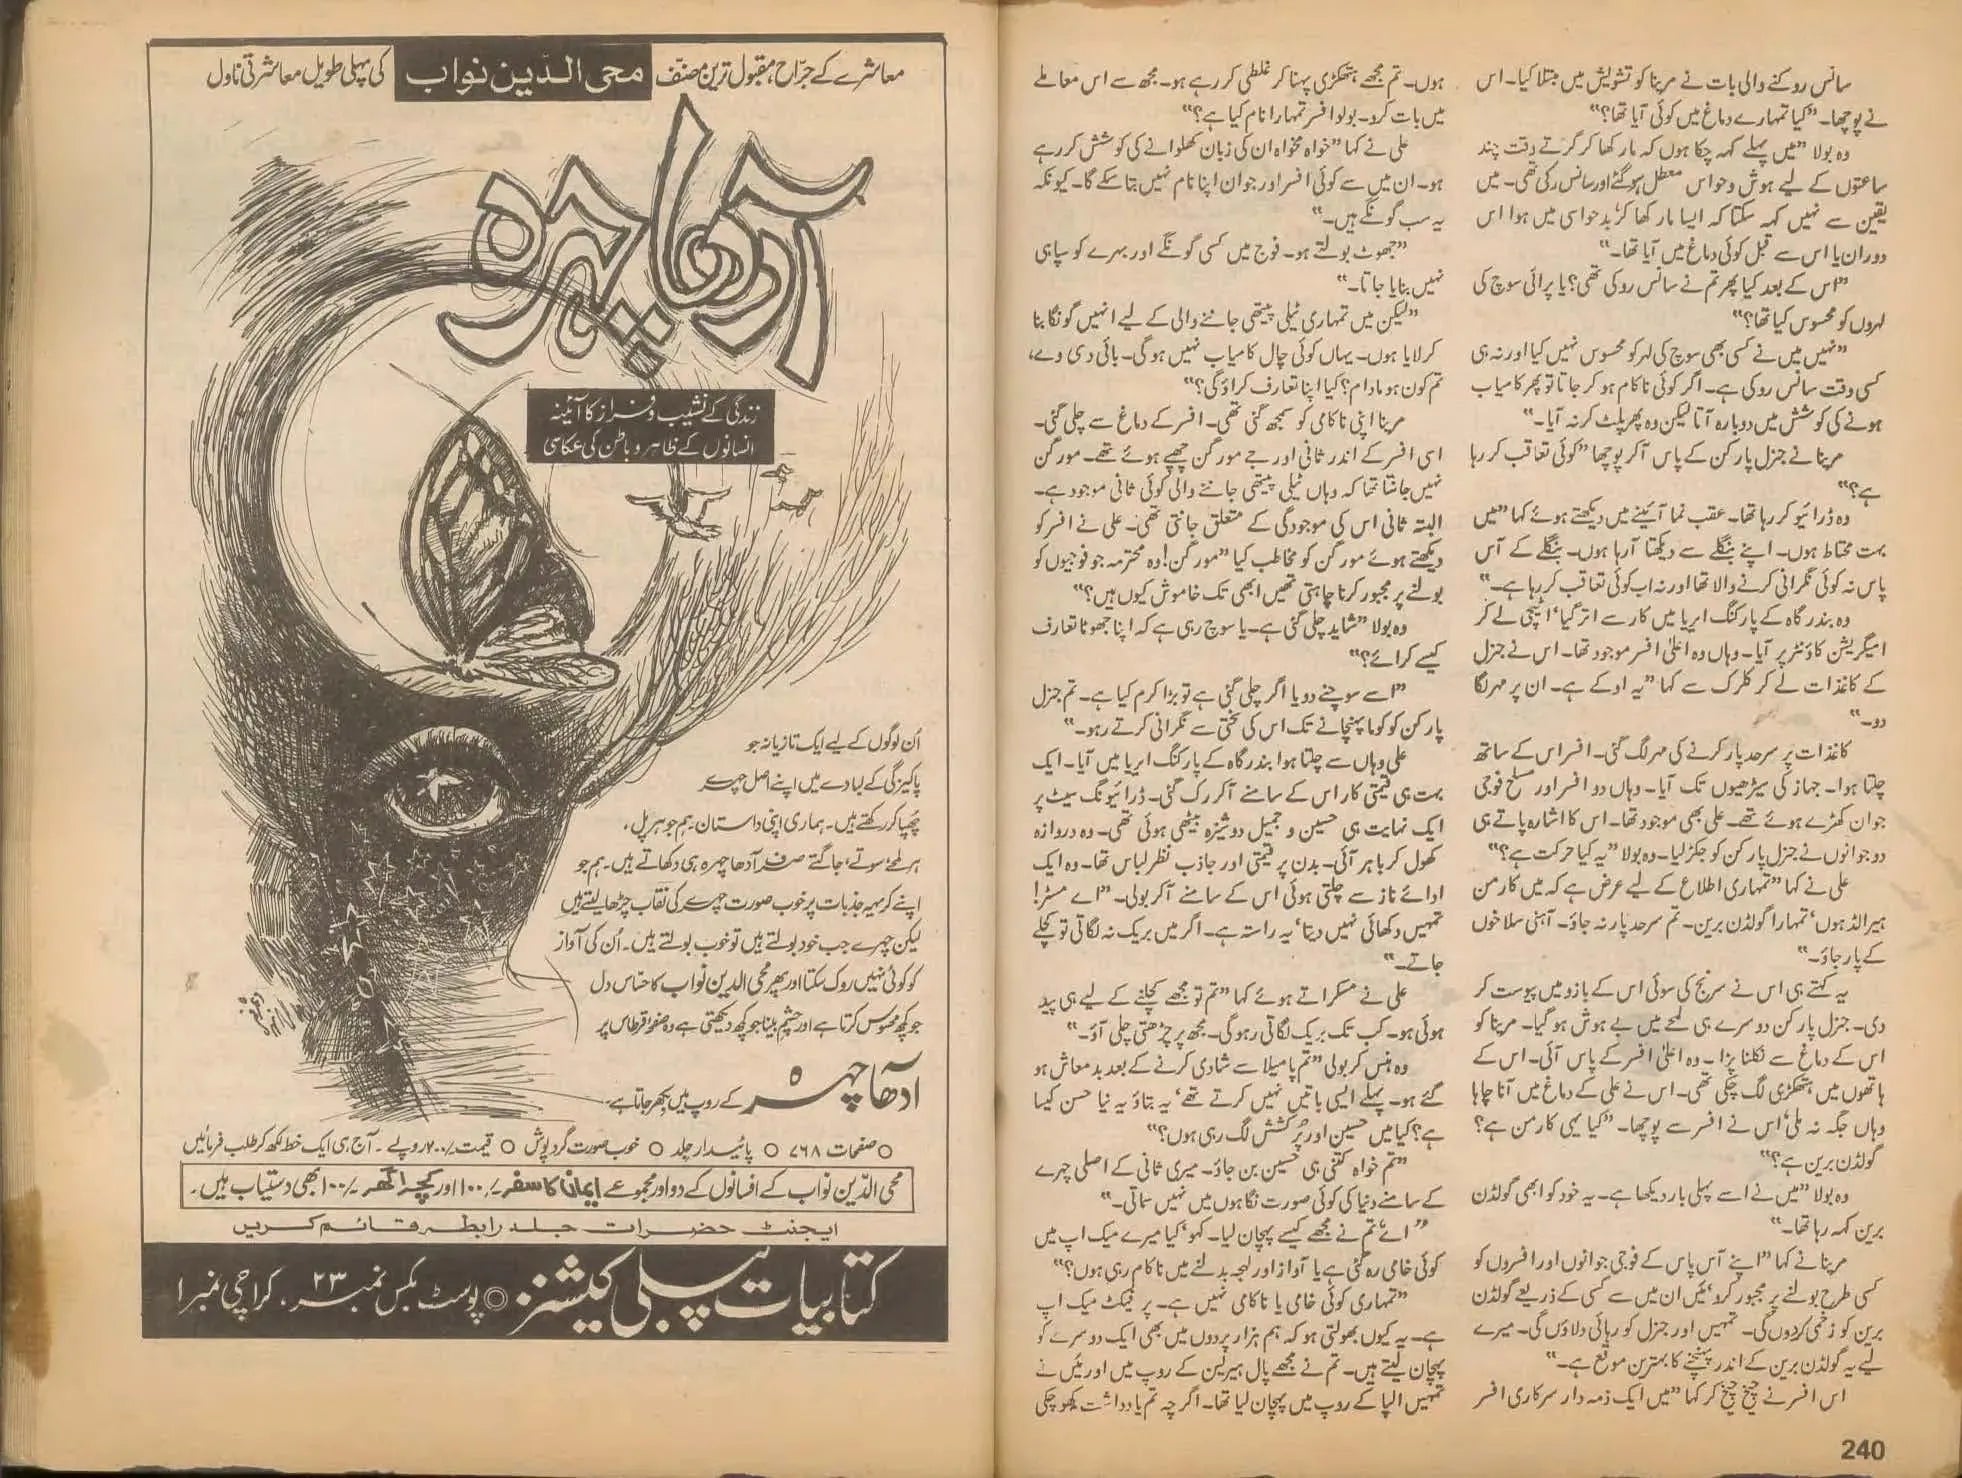 سانس روکنے والی بات نے مرینا کو تشویش میں مبتلا کیا۔ اس
نے پوچھا۔ ”کیا تمہارے دماغ میں کوئی آیا تھا؟“
وہ بولا ”میں پہلے کہہ چکا ہوں کہ مار کھا کر گرتے وقت چند
ساعتوں کے لیے ہوش و حواس معطل ہو گئے اور سانس رکی تھی۔ میں
یقین سے نہیں کہہ سکتا کہ ایسا مار کھا کر بدحواسی میں ہوا اس
دوران یا اس سے قبل کوئی دماغ میں آیا تھا۔“
”اس کے بعد کیا پھر تم نے سانس روکی تھی؟ یا پرائی سوچ کی
لہروں کو محسوس کیا تھا؟“
”نہیں میں نے کسی بھی سوچ کی لہر کو محسوس نہیں کیا اور نہ ہی
کسی وقت سانس روکی ہے۔ اگر کوئی ناکام ہو کر جاتا تو پھر کامیاب
ہونے کی کوشش میں دوبارہ آتا لیکن وہ پھر پلٹ کر نہ آیا۔“
مرینا نے جنرل پارکن کے پاس آکر پوچھا ”کوئی تعاقب کر رہا
ہے؟“
وہ ڈرائیو کر رہا تھا۔ عقب نما آئینے میں دیکھتے ہوئے کہا ”میں
بہت محتاط ہوں۔ اپنے بنگلے سے دیکھتا آرہا ہوں۔ بنگلے کے آس
پاس نہ کوئی نگرانی کرنے والا تھا اور نہ اب کوئی تعاقب کر رہا ہے۔“
وہ بندرگاہ کے پارکنگ ایریا میں کار سے اتر گیا‘ اٹیچی لے کر
امیگریشن کاؤنٹر پر آیا۔ وہاں وہ اعلیٰ افسر موجود تھا۔ اس نے جنرل
کے کاغذات لے کر کلرک سے کہا ”یہ اوکے ہے۔ ان پر مہر لگا
دو۔“
کاغذات پر سرحد پار کرنے کی مہر لگ گئی۔ افسر اس کے ساتھ
چلتا ہوا۔ جہاز کی سیڑھیوں تک آیا۔ وہاں دو افسر اور مسلح فوجی
جوان کھڑے ہوئے تھے۔ علی بھی موجود تھا۔ اس کا اشارہ پاتے ہی
دو جوانوں نے جنرل پارکن کو جکڑ لیا۔ وہ بولا ”یہ کیا حرکت ہے؟“
علی نے کہا ”تمہاری اطلاع کے لیے عرض ہے کہ میں کارمن
ہیرالڈ ہوں‘ تمہارا گولڈن برین۔ تم سرحد پار نہ جاؤ۔ آہنی سلاخوں
کے پار جاؤ۔“
یہ کہتے ہی اس نے سرنج کی سوئی اس کے بازو میں پیوست کر
دی۔ جنرل پارکن دوسرے ہی لمحے میں بے ہوش ہو گیا۔ مرینا کو
اس کے دماغ سے نکلنا پڑا۔ وہ اعلیٰ افسر کے پاس آئی۔ اس کے
ہاتھوں میں ہتھکڑی لگ چکی تھی۔ اس نے علی کے دماغ میں آنا چاہا
وہاں جگہ نہ ملی‘ اس نے افسر سے پوچھا۔ ”کیا یہی کارمن ہے؟
گولڈن برین ہے؟“
وہ بولا ”میں نے اسے پہلی بار دیکھا ہے۔ یہ خود کو ابھی گولڈن
برین کہہ رہا تھا۔“
مرینا نے کہا ”اپنے آس پاس کے فوجی جوانوں اور افسروں کو
کسی طرح بولنے پر مجبور کرو‘ میں ان میں سے کسی کے ذریعے گولڈن
برین کو زخمی کردوں گی۔ تمہیں اور جنرل کو رہائی دلاؤں گی۔ میرے
لیے یہ گولڈن برین کے اندر پہنچنے کا بہترین موقع ہے۔“
اس افسر نے چیخ چیخ کر کہا ”میں ایک ذمہ دار سرکاری افسر
240
ہوں۔ تم مجھے ہتھکڑی پہنا کر غلطی کر رہے ہو۔ مجھ سے اس معاملے
میں بات کرو۔ بولو افسر تمہارا نام کیا ہے؟“
علی نے کہا ”خواہ مخواہ ان کی زبان کھلوانے کی کوشش کر رہے
ہو۔ ان میں سے کوئی افسر اور جوان اپنا نام نہیں بتا سکے گا۔ کیونکہ
یہ سب گونگے ہیں۔“
”جھوٹ بولتے ہو۔ فوج میں کسی گونگے اور بہرے کو سپاہی
نہیں بنایا جاتا۔“
”لیکن میں تمہاری ٹیلی پیتھی جاننے والی کے لیے انہیں گونگا بنا
کر لایا ہوں۔ یہاں کوئی چال کامیاب نہیں ہوگی۔ بائی دی وے‘
تم کون ہو مادام؟ کیا اپنا تعارف کراؤ گی؟“
مرینا اپنی ناکامی کو سمجھ گئی تھی۔ افسر کے دماغ سے چلی گئی۔
اسی افسر کے اندر ثانی اور جے مورگن چھپے ہوئے تھے۔ مورگن
نہیں جانتا تھا کہ وہاں ٹیلی پیتھی جاننے والی کوئی ثانی موجود ہے۔
البتہ ثانی اس کی موجودگی کے متعلق جانتی تھی۔ علی نے افسر کو
دیکھتے ہوئے مورگن کو مخاطب کیا ”مورگن! وہ محترمہ جو فوجیوں کو
بولنے پر مجبور کرنا چاہتی تھیں ابھی تک خاموش کیوں ہیں؟“
وہ بولا ”شاید چلی گئی ہے۔ یا سوچ رہی ہے کہ اپنا جھوٹا تعارف
کیسے کرائے؟“
”اسے سوچنے دو یا اگر چلی گئی ہے تو بڑا کرم کیا ہے۔ تم جنرل
پارکن کو کوما پہنچانے تک اس کی سختی سے نگرانی کرتے رہو۔“
علی وہاں سے چلتا ہوا بندرگاہ کے پارکنگ ایریا میں آیا۔ ایک
بہت ہی قیمتی کار اس کے سامنے آکر رک گئی۔ ڈرائیونگ سیٹ پر
ایک نہایت ہی حسین و جمیل دوشیزہ بیٹھی ہوئی تھی۔ وہ دروازہ
کھول کر باہر آئی۔ بدن پر قیمتی اور جاذب نظر لباس تھا۔ وہ ایک
ادائے ناز سے چلتی ہوئی اس کے سامنے آکر بولی۔ ”اے مسٹر!
تمہیں دکھائی نہیں دیتا‘ یہ راستہ ہے۔ اگر میں بریک نہ لگاتی تو کچلے
جاتے۔“
علی نے مسکراتے ہوئے کہا ”تم تو مجھے کچلنے کے لیے ہی پیدا
ہوئی ہو۔ کب تک بریک لگاتی رہو گی۔ مجھ پر چڑھتی چلی آؤ۔“
وہ ہنس کر بولی ”تم پامیلا سے شادی کرنے کے بعد بدمعاش ہو
گئے ہو۔ پہلے ایسی باتیں نہیں کرتے تھے‘ یہ بتاؤ یہ نیا حسن کیسا
ہے؟ کیا میں حسین اور پُرکشش لگ رہی ہوں؟“
”تم خواہ کتنی ہی حسین بن جاؤ۔ میری ثانی کے اصلی چہرے
کے سامنے دنیا کی کوئی صورت نگاہوں میں نہیں سماتی۔“
”اے‘ تم نے مجھے کیسے پہچان لیا۔ کہو‘ کیا میرے میک اپ میں
کوئی خامی رہ گئی ہے یا آواز اور لہجہ بدلنے میں ناکام رہی ہوں؟“
”تمہاری کوئی خامی یا ناکامی نہیں ہے۔ پرفیکٹ میک اپ
ہے۔ یہ کیوں بھولتی ہو کہ ہم ہزار پردوں میں بھی ایک دوسرے کو
پہچان لیتے ہیں۔ تم نے مجھے پال ہیرلین کے روپ میں اور میں نے
تمہیں الپا کے روپ میں پہچان لیا تھا۔ اگرچہ تم یادداشت کھو چکی
معاشرے کے جراح، مقبول ترین مصنّف محی الدّین نواب کی پہلی طویل معاشرتی ناول
آدھا چہرہ
زندگی کے نشیب و فراز کا آئینہ
انسانوں کے ظاہر و باطن کی عکاسی
اُن لوگوں کے لیے ایک تازیانہ جو
پاکیزگی کے لبادے میں اپنے اصل چہرے
چھپا کر رکھتے ہیں۔ ہماری اپنی داستان۔ ہم جو ہر پل،
ہر لمحے‘ سوتے‘ جاگتے صرف آدھا چہرہ ہی دکھاتے ہیں۔ ہم جو
اپنے کریہہ جذبات پر خوب صورت چہرے کی نقاب چڑھا لیتے ہیں
لیکن چہرے جب خود بولتے ہیں تو خوب بولتے ہیں۔ اُن کی آواز
کو کوئی نہیں روک سکتا اور پھر محی الدین نواب کا حسّاس دل
جو کچھ محسوس کرتا ہے اور چشمِ بینا جو کچھ دیکھتی ہے وہ صفحۂ قرطاس پر
آدھا چہرہ کے روپ میں بکھر جاتا ہے۔
○ صفحات ۷۶۸ ○ پائیدار جلد ○ خوب صورت گردپوش ○ قیمت ۶۰۰/۔ روپے ۔ آج ہی ایک خط لکھ کر طلب فرمائیں
محی الدّین نواب کے افسانوں کے دو اور مجموعے ایمان کا سفر ۱۰۰/۔ اور کچرا گھر ۱۰۰/۔ بھی دستیاب ہیں۔
ایجنٹ حضرات جلد رابطہ قائم کریں
کتابیات پبلی کیشنز ◎ پوسٹ بکس نمبر ۲۳، کراچی نمبر ۱